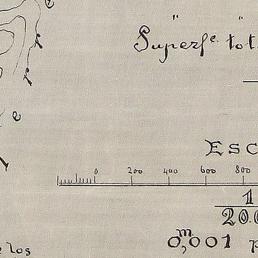 "
e
Superfe. tot
e
ESC
0 200 400 600 800
1
20.0
0,m001 p
e los